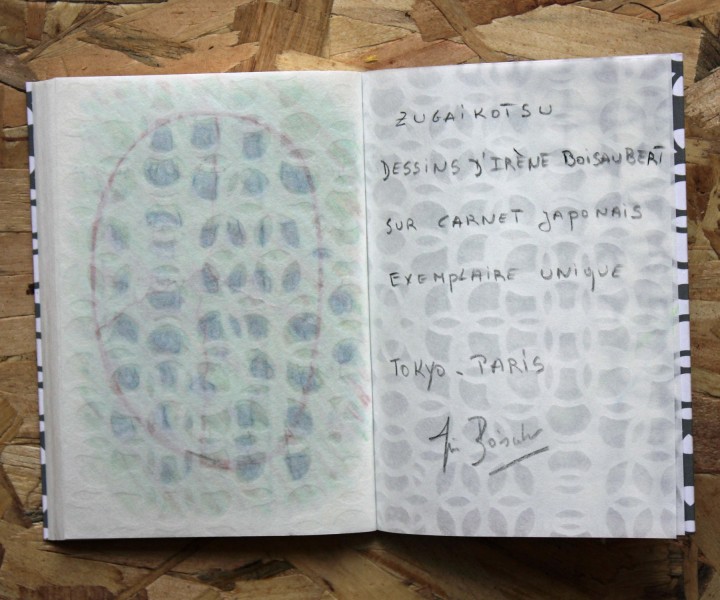 ZUGAIKOTSU
DESSINS D'IRÈNE BOISAUBERT
SUR CARNET JAPONAIS
EXEMPLAIRE UNIQUE
TOKYO - PARIS